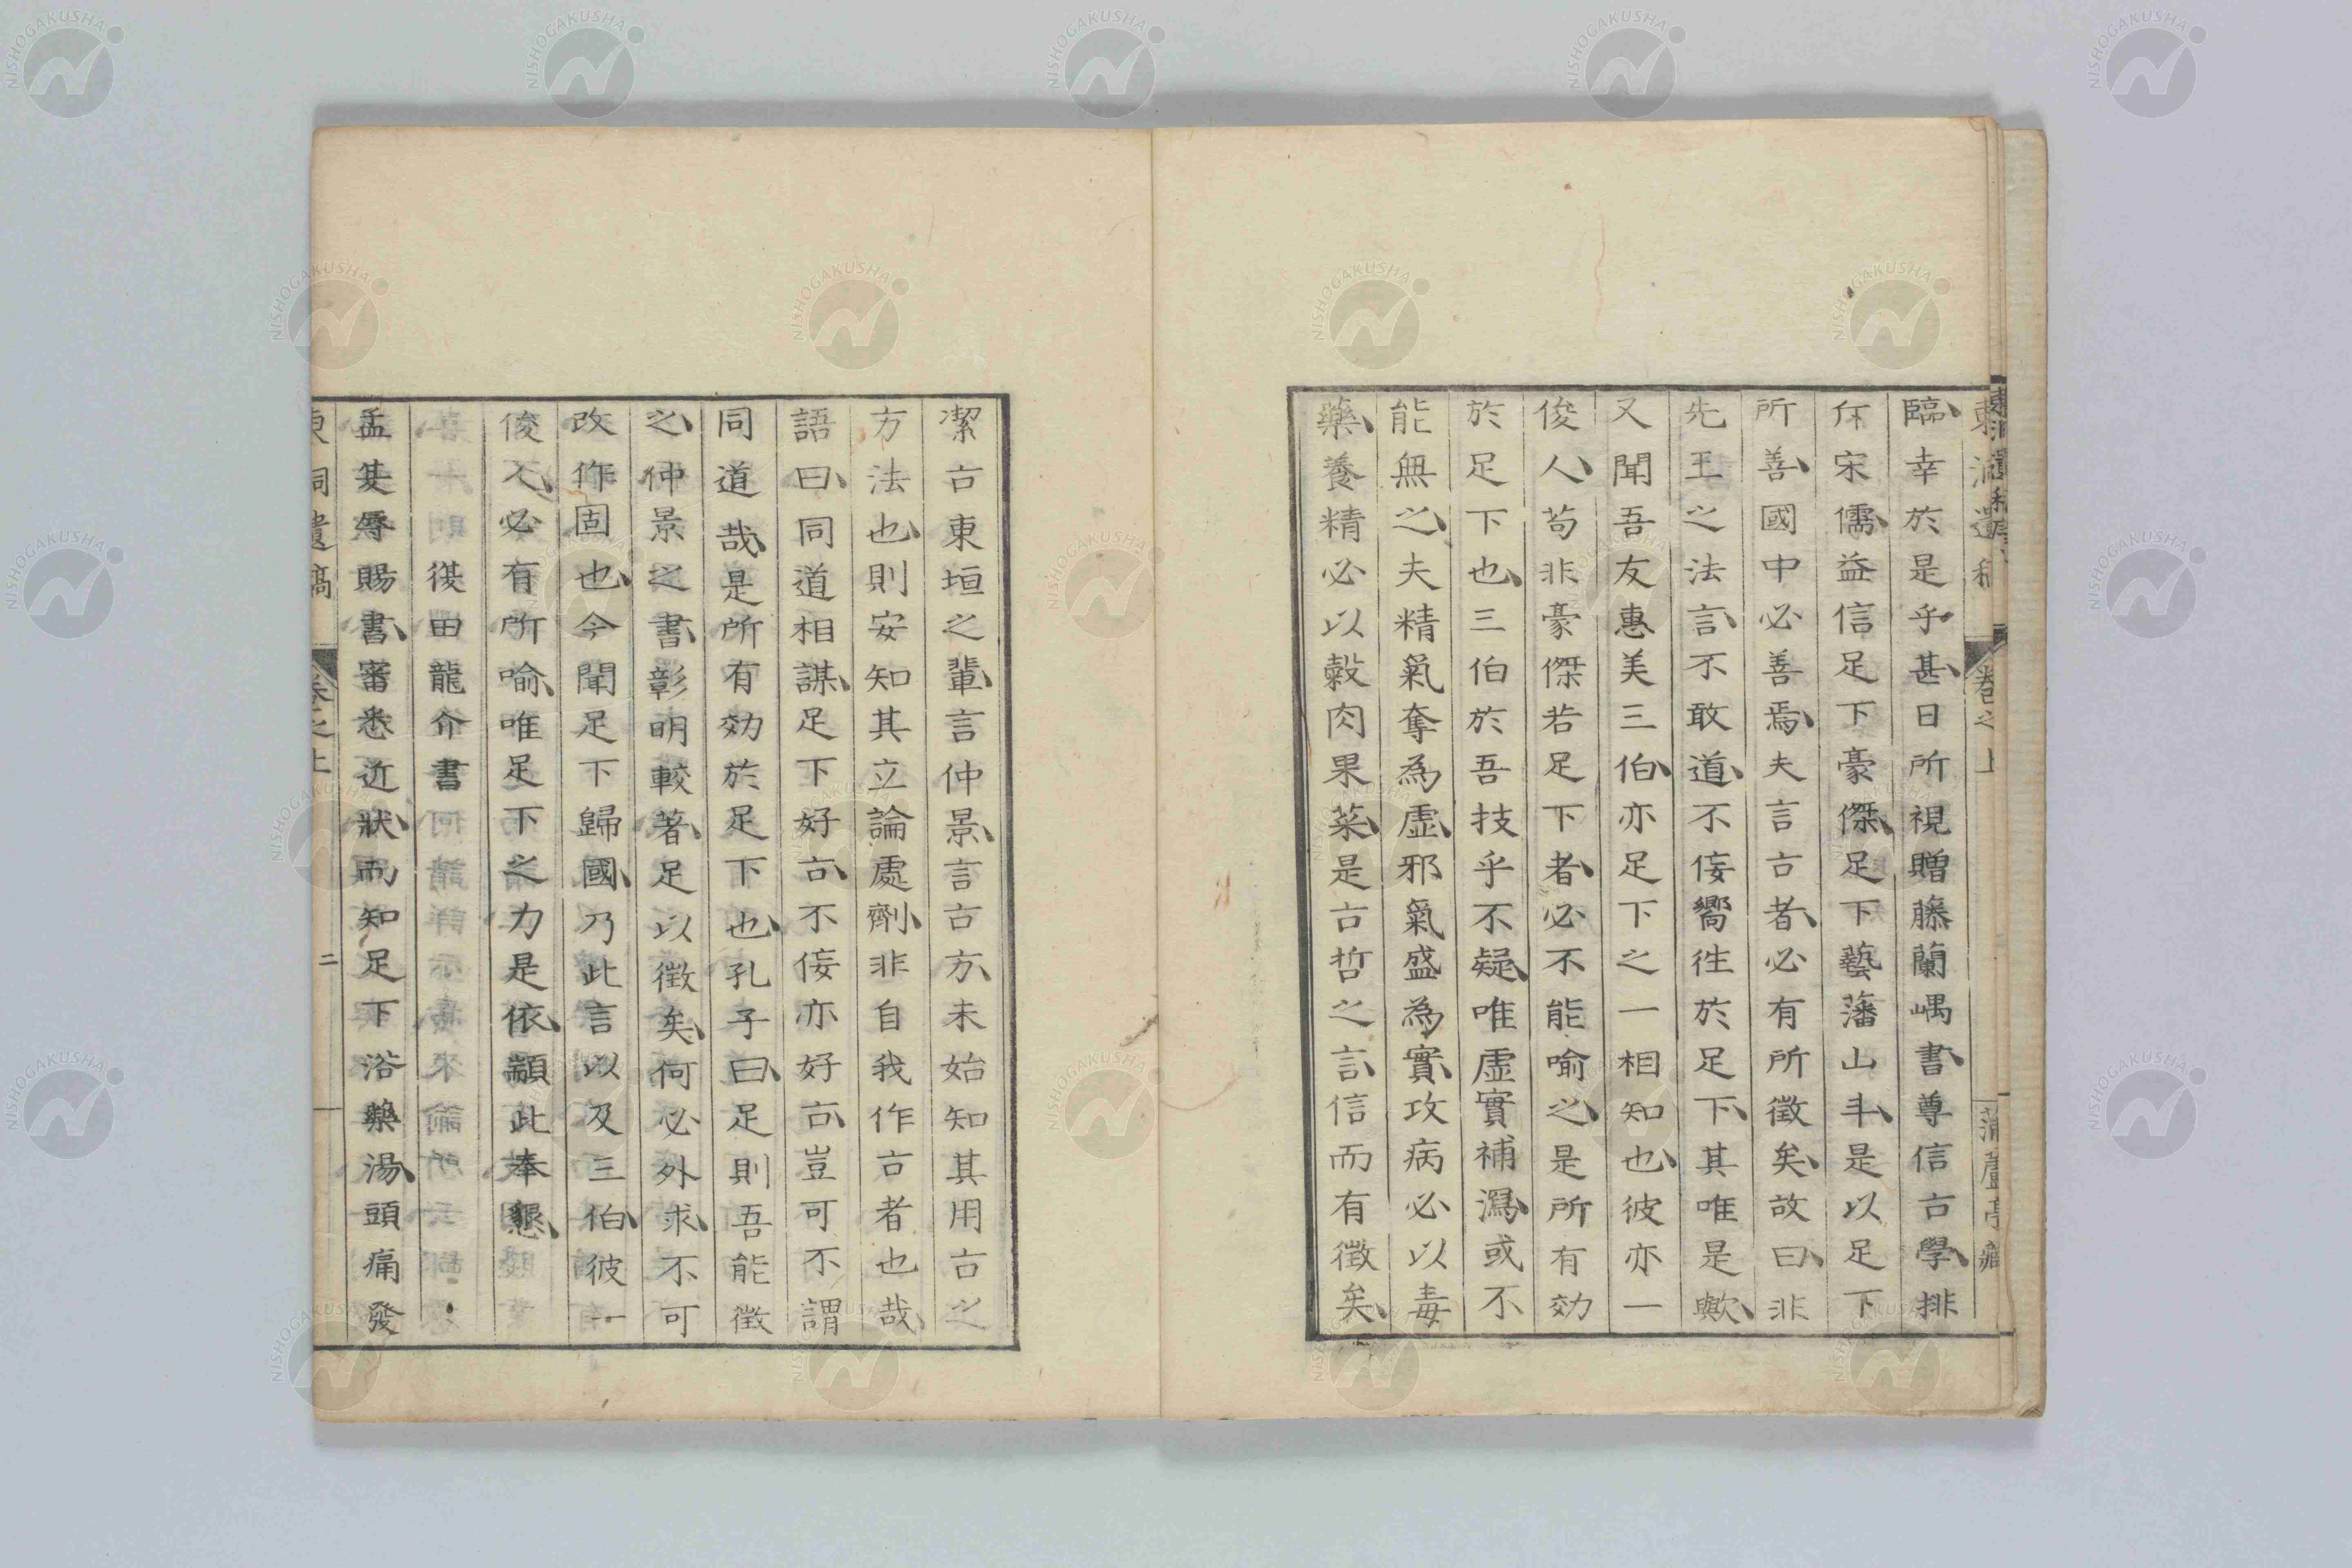 東洞遺稿 卷之上
臨、幸於是乎甚、日所視贈藤蘭嵎書、尊信古學、排
斥宋儒、益信足下豪傑、足下藝藩山斗、是以足下
所善、國中必善焉、夫言古者、必有所徵矣、故曰、非
先王之法言、不敢道、不佞嚮往於足下、其唯是歟、
又聞吾友惠美三伯、亦足下之一相知也、彼亦一
俊人、苟非豪傑若足下者、必不能喻之、是所有効
於足下也、三伯於吾技乎不疑、唯虛實補瀉、或不
能無之、夫精氣奪為虛、邪氣盛為實、攻病必以毒
藥、養精必以穀肉果菜、是古哲之言、信而有徵矣、
潔古東垣之輩、言仲景、言古方、未始知其用古之
方法也、則安知其立論處劑、非自我作古者也哉、
語曰、同道相謀、足下好古、不佞亦好古、豈可不謂
同道哉、是所有効於足下也、孔子曰、足則吾能徵
之、仲景之書、彰明較著、足以徵矣、何必外求、不可
改作固也、今聞足下歸國、乃此言以及三伯、彼一
俊人、必有所喻、唯足下之力是依、顓此奉懇、
復田龍介書
孟廷辱賜書、審悉近狀、而知足下浴藥湯、頭痛發
東洞遺稿 卷之上 二